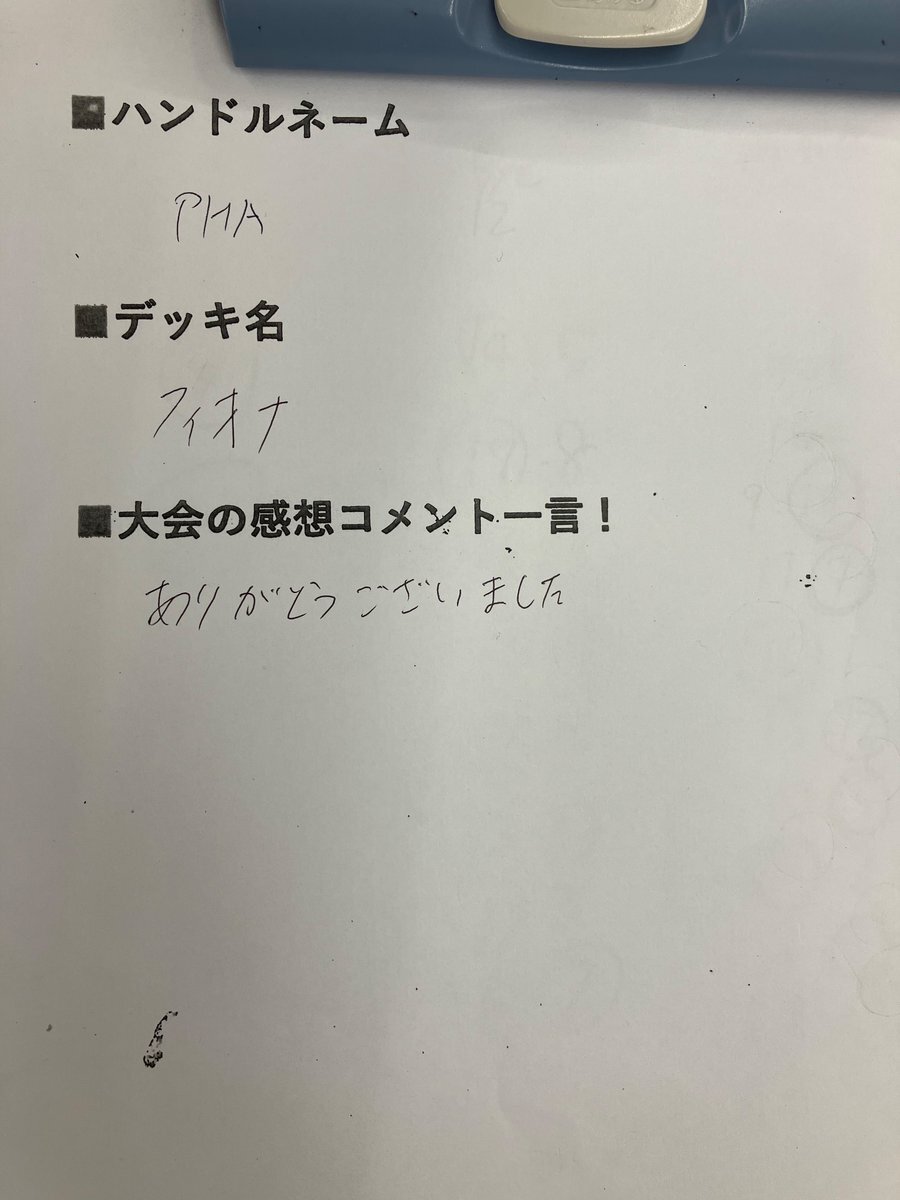 ■ハンドルネーム
PHA
■デッキ名
フィオナ
■大会の感想コメント一言！
ありがとうございました